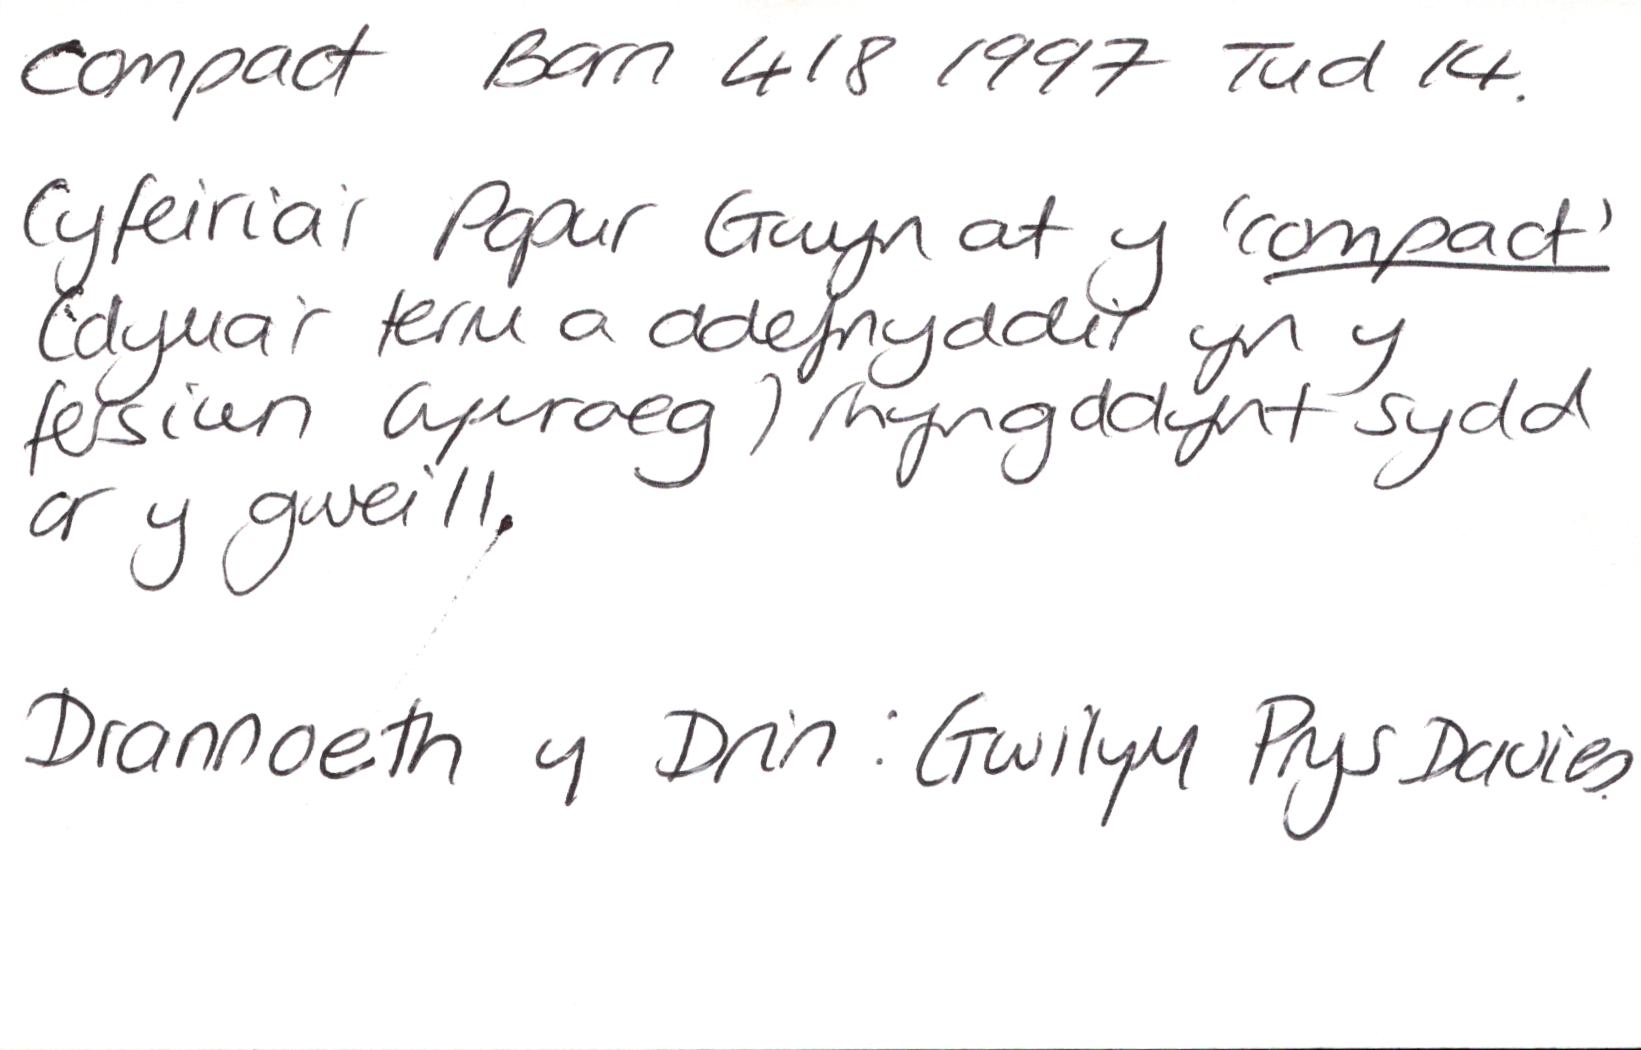 compact Barn 418 1997 Tud 14.
Cyfeiria'r Papur Gwyn at y 'compact'
(dyma'r term a ddefnyddir yn y
fersiwn Gymraeg) rhyngddynt sydd
ar y gweill.
Drannoeth y Drin : Gwilym Prys Davies.